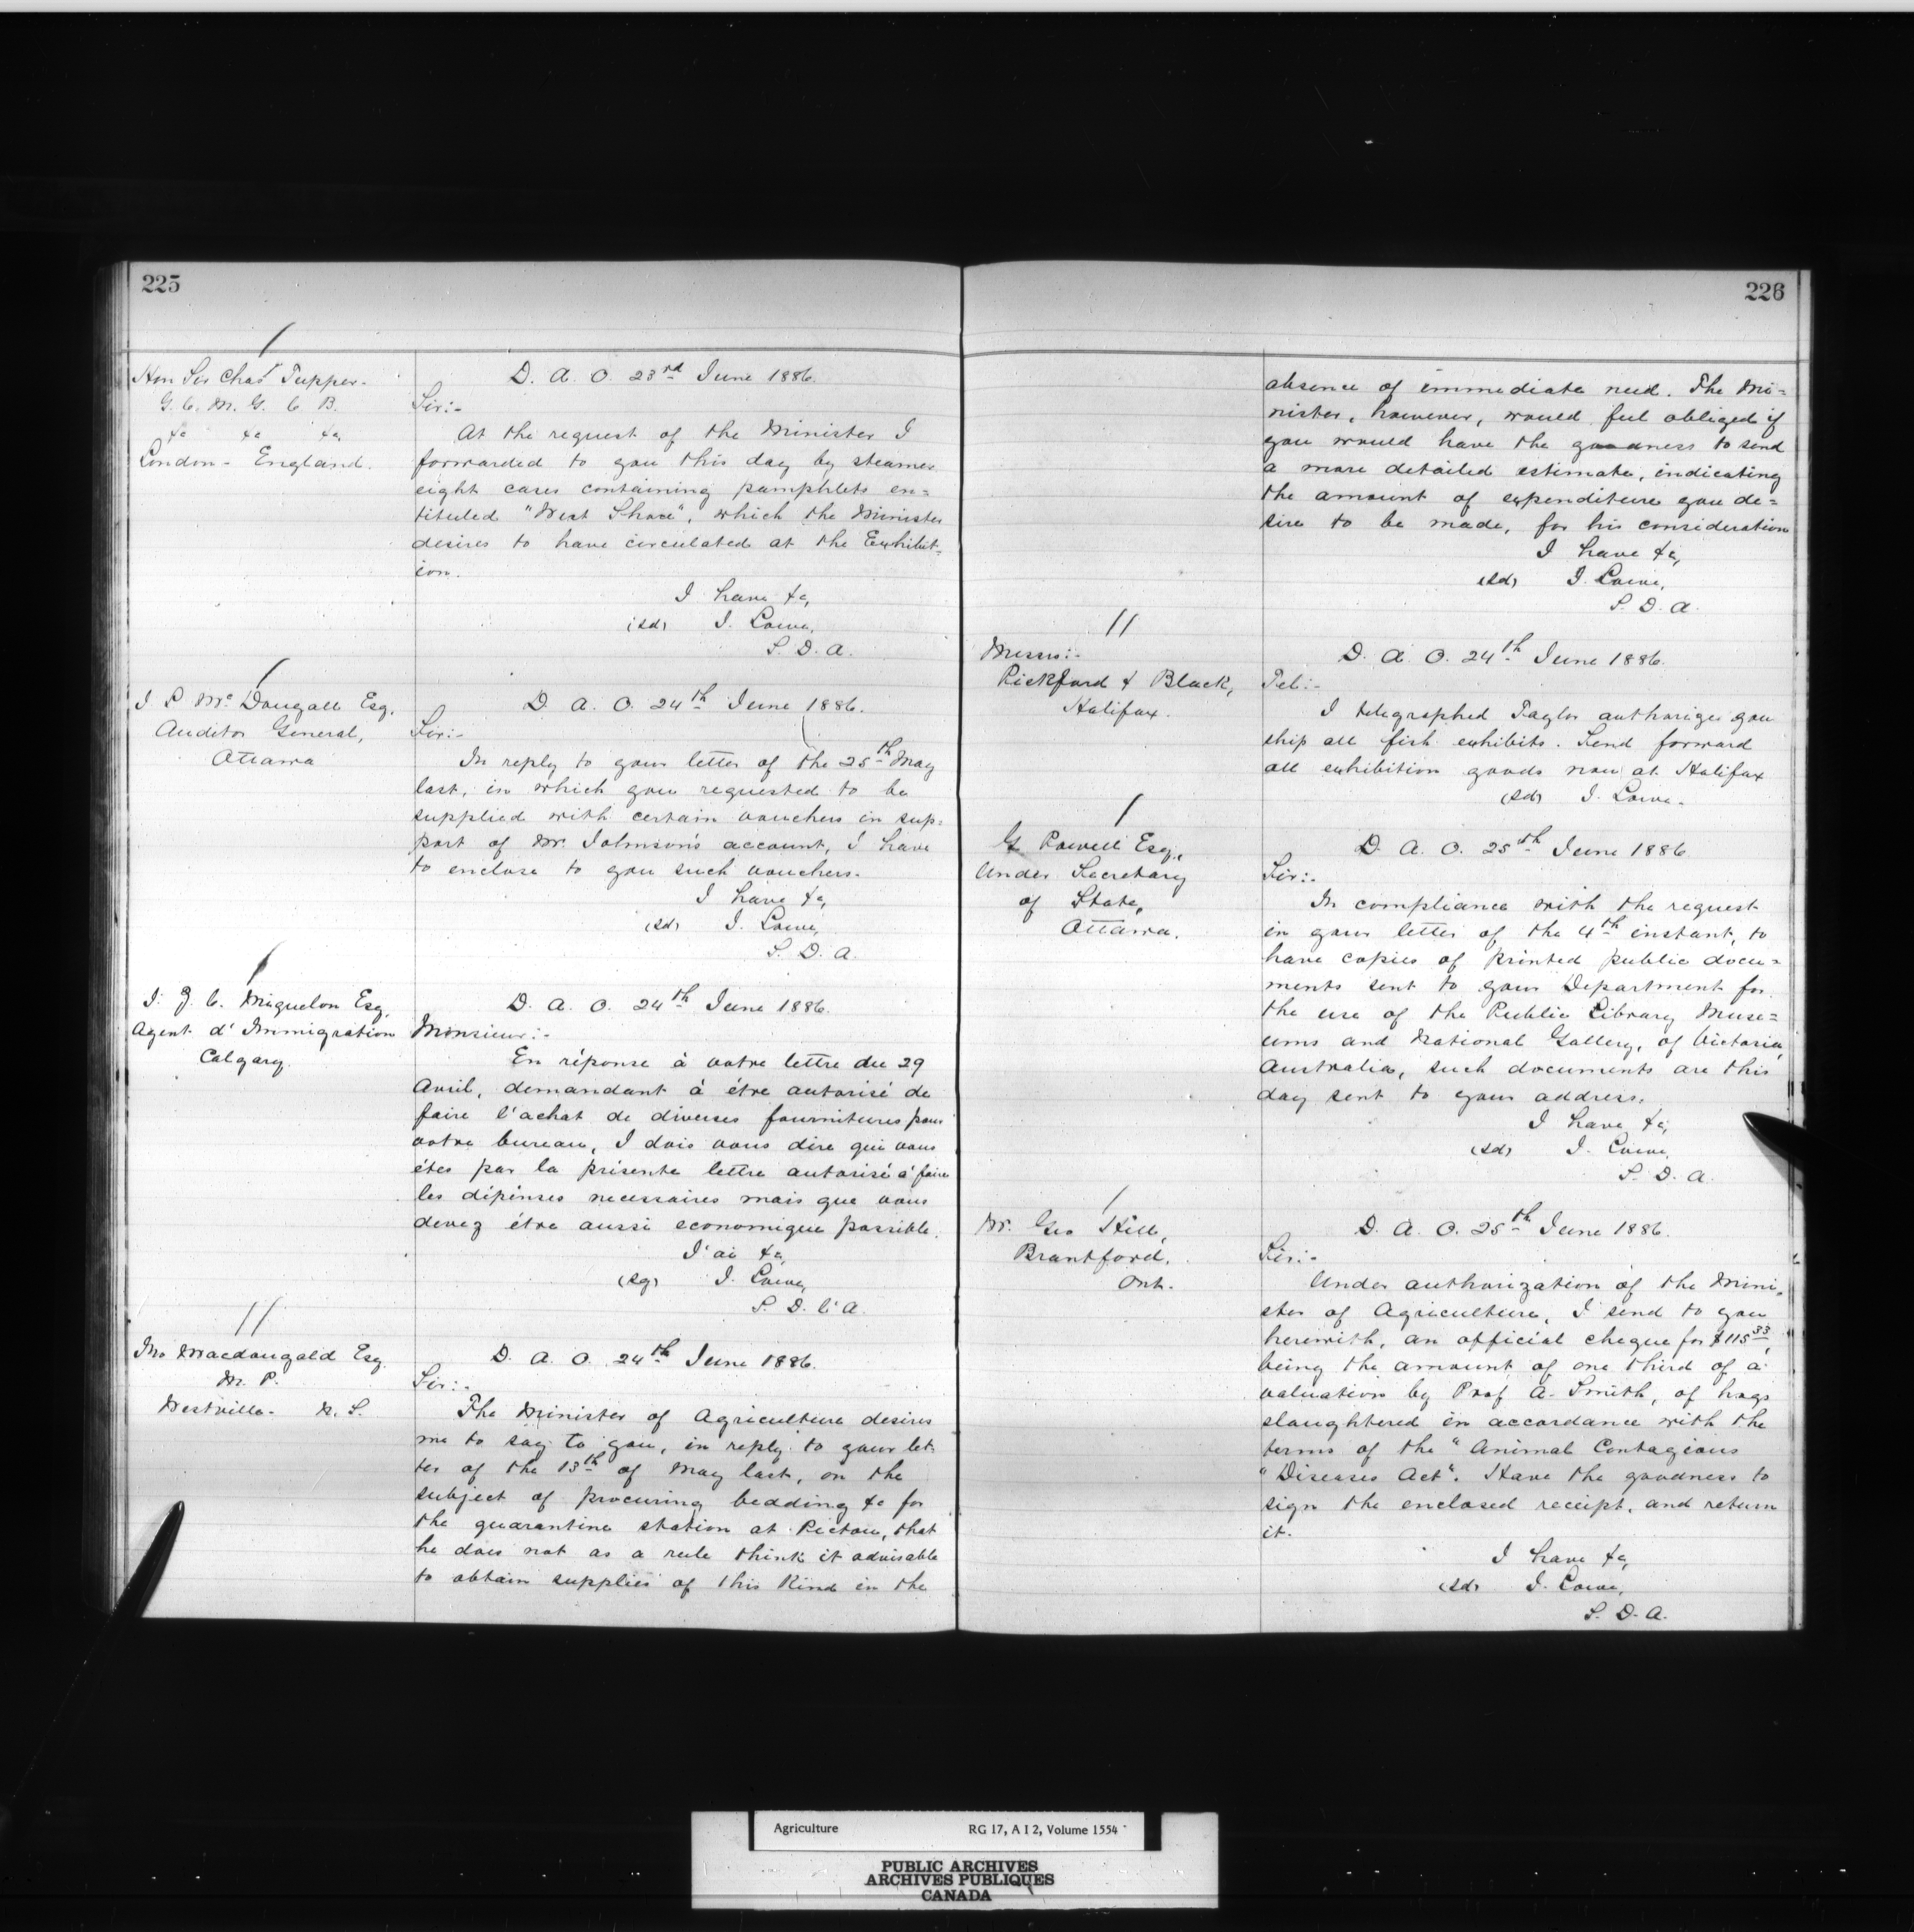 225
/
Hon Sir Chas Tupper.
G. C. M. G. C. B.
&c &c &c
London - England.
D. A. O. 23rd June 1886.
Sir:-
At the request of the Minister I
forwarded to you this day by steamer
eight cases containing pamphlets en=
tituled "West Shore", which the Minister
desires to have circulated at the Exhibit-
ion.
I have &c,
(sd) J. Lowe,
S. D. A.
/
J L Mc Dougall Esq.
Auditor General,
Ottawa
D. A. O. 24th June 1886.
Sir:-
In reply to your letter of the 25th May
last, in which you requested to be
supplied with certain vouchers in sup=
port of Mr. Johnson's account, I have
to enclose to you such vouchers.
I have &c,
(sd) J. Lowe,
S. D. A.
/
J. Z. C. Miquelon Esq,
Agent d' Immigration
Calgary.
D. A. O. 24th June 1886.
Monsieur:-
En réponse à votre lettre du 29
Avril, demandant à être autorisé de
faire l'achat de diverses fournitures pour
votre bureau, I dois vous dire que vous
êtes par la présente lettre autorisé à faire
les dépenses necessaires mais que vous
devez être aussi economique possible.
J'ai &c,
(sg) J. Lowe,
S. D. l'A.
//
Jno Macdougald Esq.
M. P.
Westville - N. S.
D. A. O. 24th June 1886.
Sir:-
The Minister of Agriculture desires
me to say to you, in reply to your let-
ter of the 13th of May last, on the
subject of procuring bedding &c for
the quarantine station at Pictou, that
he does not as a rule think it advisable
to obtain supplies of this kind in the
226
absence of immediate need. The Mi=
nister, however, would feel obliged if
you would have the goodness to send
a more detailed estimate, indicating
the amount of expenditure you de=
sire to be made, for his consideration
I have &c,
(sd) J. Lowe,
S. D. A.
//
Messrs:-
Pickford & Black,
Halifax.
D. A. O. 24th June 1886.
Tel:-
I telegraphed Taylor authorize you
ship all fish exhibits. Send forward
all exhibition goods now at Halifax
(sd) J. Lowe.
/
G Powell Esq.,
Under Secretary
of State,
Ottawa.
D. A. O. 25th June 1886
Sir:-
In compliance with the request
in your letter of the 4th instant, to
have copies of printed public docu=
ments sent to your Department for
the use of the Public Library Muse=
ums and National Gallery, of Victoria,
Australia, such documents are this
day sent to your address.
I have &c,
(sd) J. Lowe,
S. D. A.
/
Mr. Geo Hill,
Brantford,
Ont.
D. A. O. 25th June 1886.
Sir:-
Under authorization of the Mini-
ster of Agriculture, I send to you
herewith, an official cheque for $115 33,
being the amount of one third of a
valuation by Prof A. Smith, of hogs
slaughtered in accordance with the
terms of the "Animal Contagious
"Diseases Act". Have the goodness to
sign the enclosed receipt, and return
it.
I have &c,
(sd) J. Lowe,
S. D. A.
Agriculture RG 17, A I 2, Volume 1554
PUBLIC ARCHIVES
ARCHIVES PUBLIQUES
CANADA